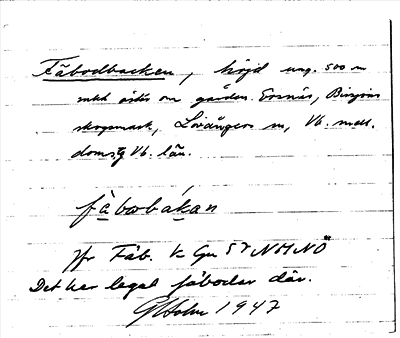 Fäbodbacken, höjd ung. 500 m
rakt öster om gården Ersnäs, Bissjöns
skogsmark, Lövångers sn, Vb. mell.
doms, Vb. län.
fä̱boba̱kan
Jfr Fäb. k Gu 5 NMNÖ
Det har legat fäbodar där.
Holm 1947